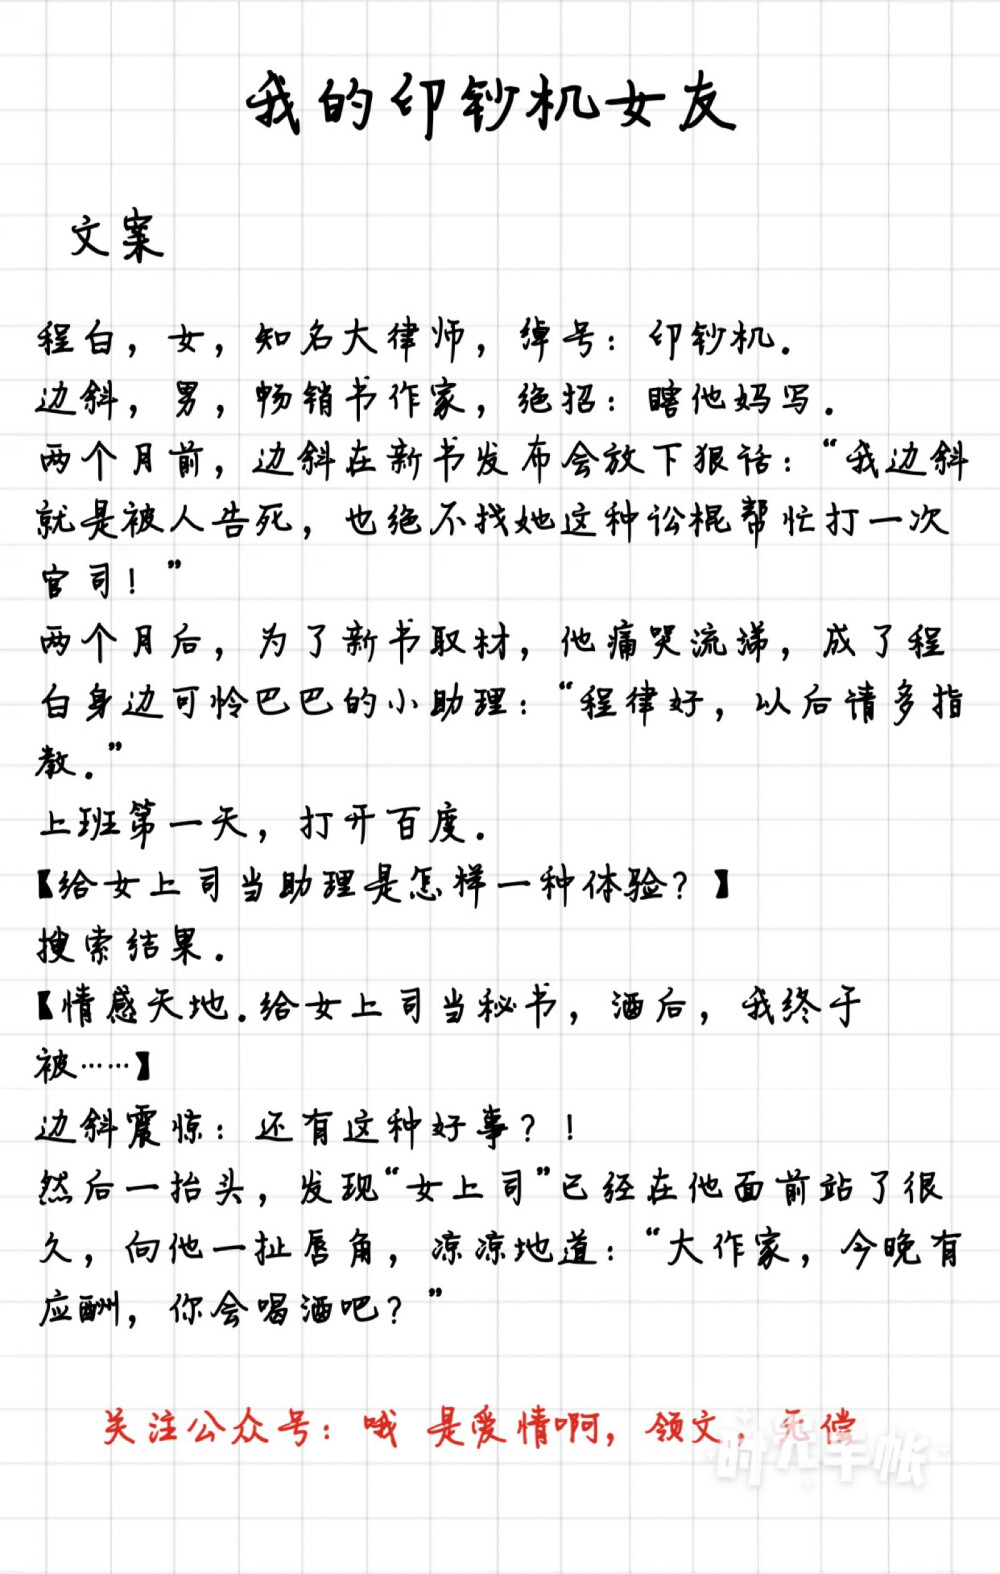 我的印钞机女友
文案
程白，女，知名大律师，绰号：印钞机.
边斜，男，畅销书作家，绝招：瞎他妈写.
两个月前，边斜在新书发布会放下狠话：“我边斜
就是被人告死，也绝不找她这种讼棍帮忙打一次
官司！”
两个月后，为了新书取材，他痛哭流涕，成了程
白身边可怜巴巴的小助理：“程律好，以后请多指
教.”
上班第一天，打开百度.
【给女上司当助理是怎样一种体验？】
搜索结果.
【情感天地.给女上司当秘书，酒后，我终于
被……】
边斜震惊：还有这种好事？！
然后一抬头，发现“女上司”已经在他面前站了很
久，向他一扯唇角，凉凉地道：“大作家，今晚有
应酬，你会喝酒吧？”
关注公众号：哦 是爱情啊，领文，无偿
时光手帐